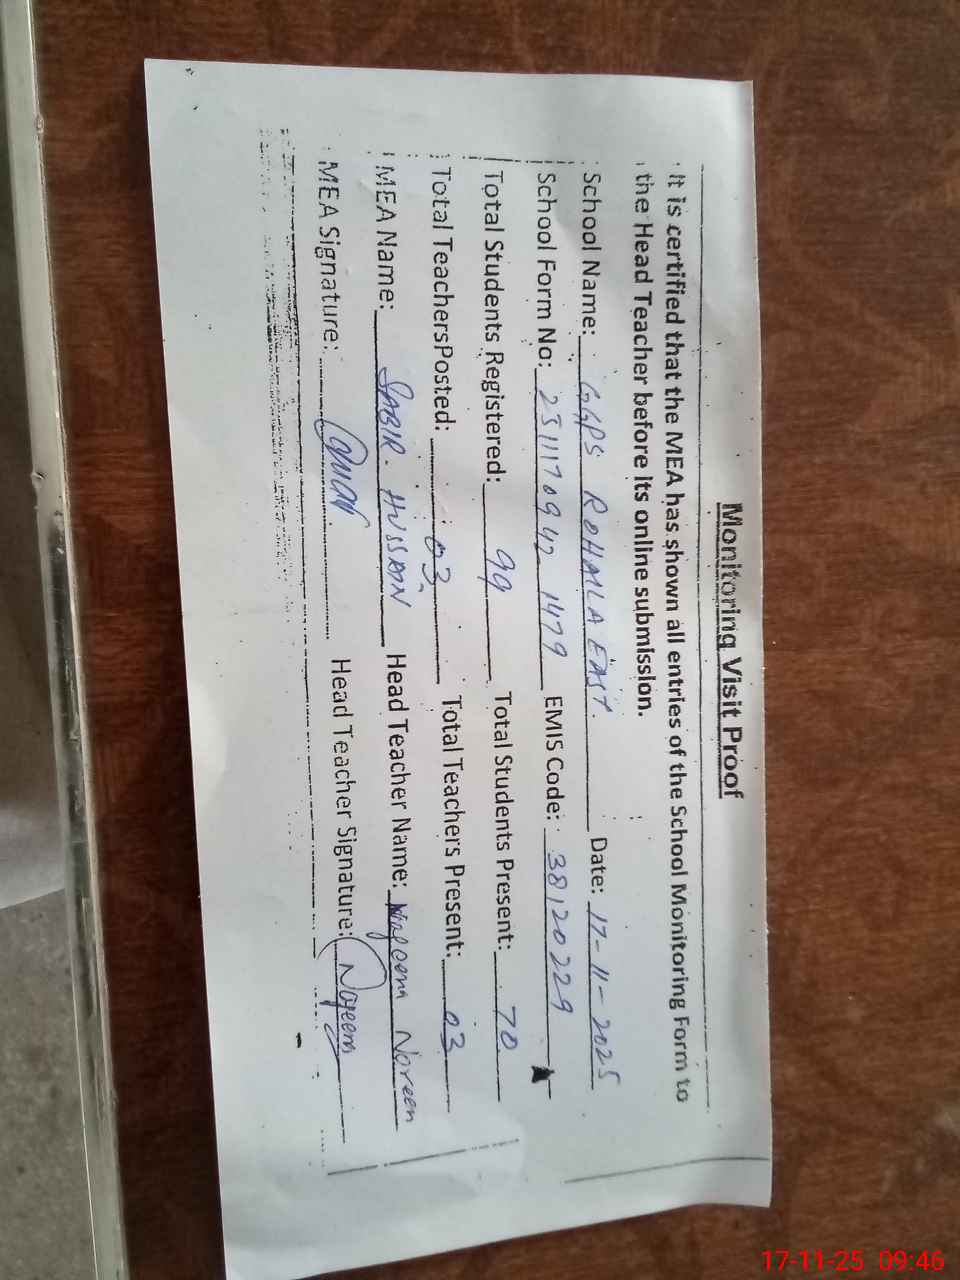 Monitoring Visit Proof
It is certified that the MEA has shown all entries of the School Monitoring Form to
the Head Teacher before its online submission.
School Name: GGPS ROHALA EAST. Date: 17-11-2025
School Form No: 25111709421479 EMIS Code: 38120229
Total Students Registered: 99 Total Students Present: 70
Total TeachersPosted: 03 Total Teachers Present: 03
MEA Name: SABIR HUSSAIN Head Teacher Name: Noreen
MEA Signature: Head Teacher Signature:
17-11-25 09:46